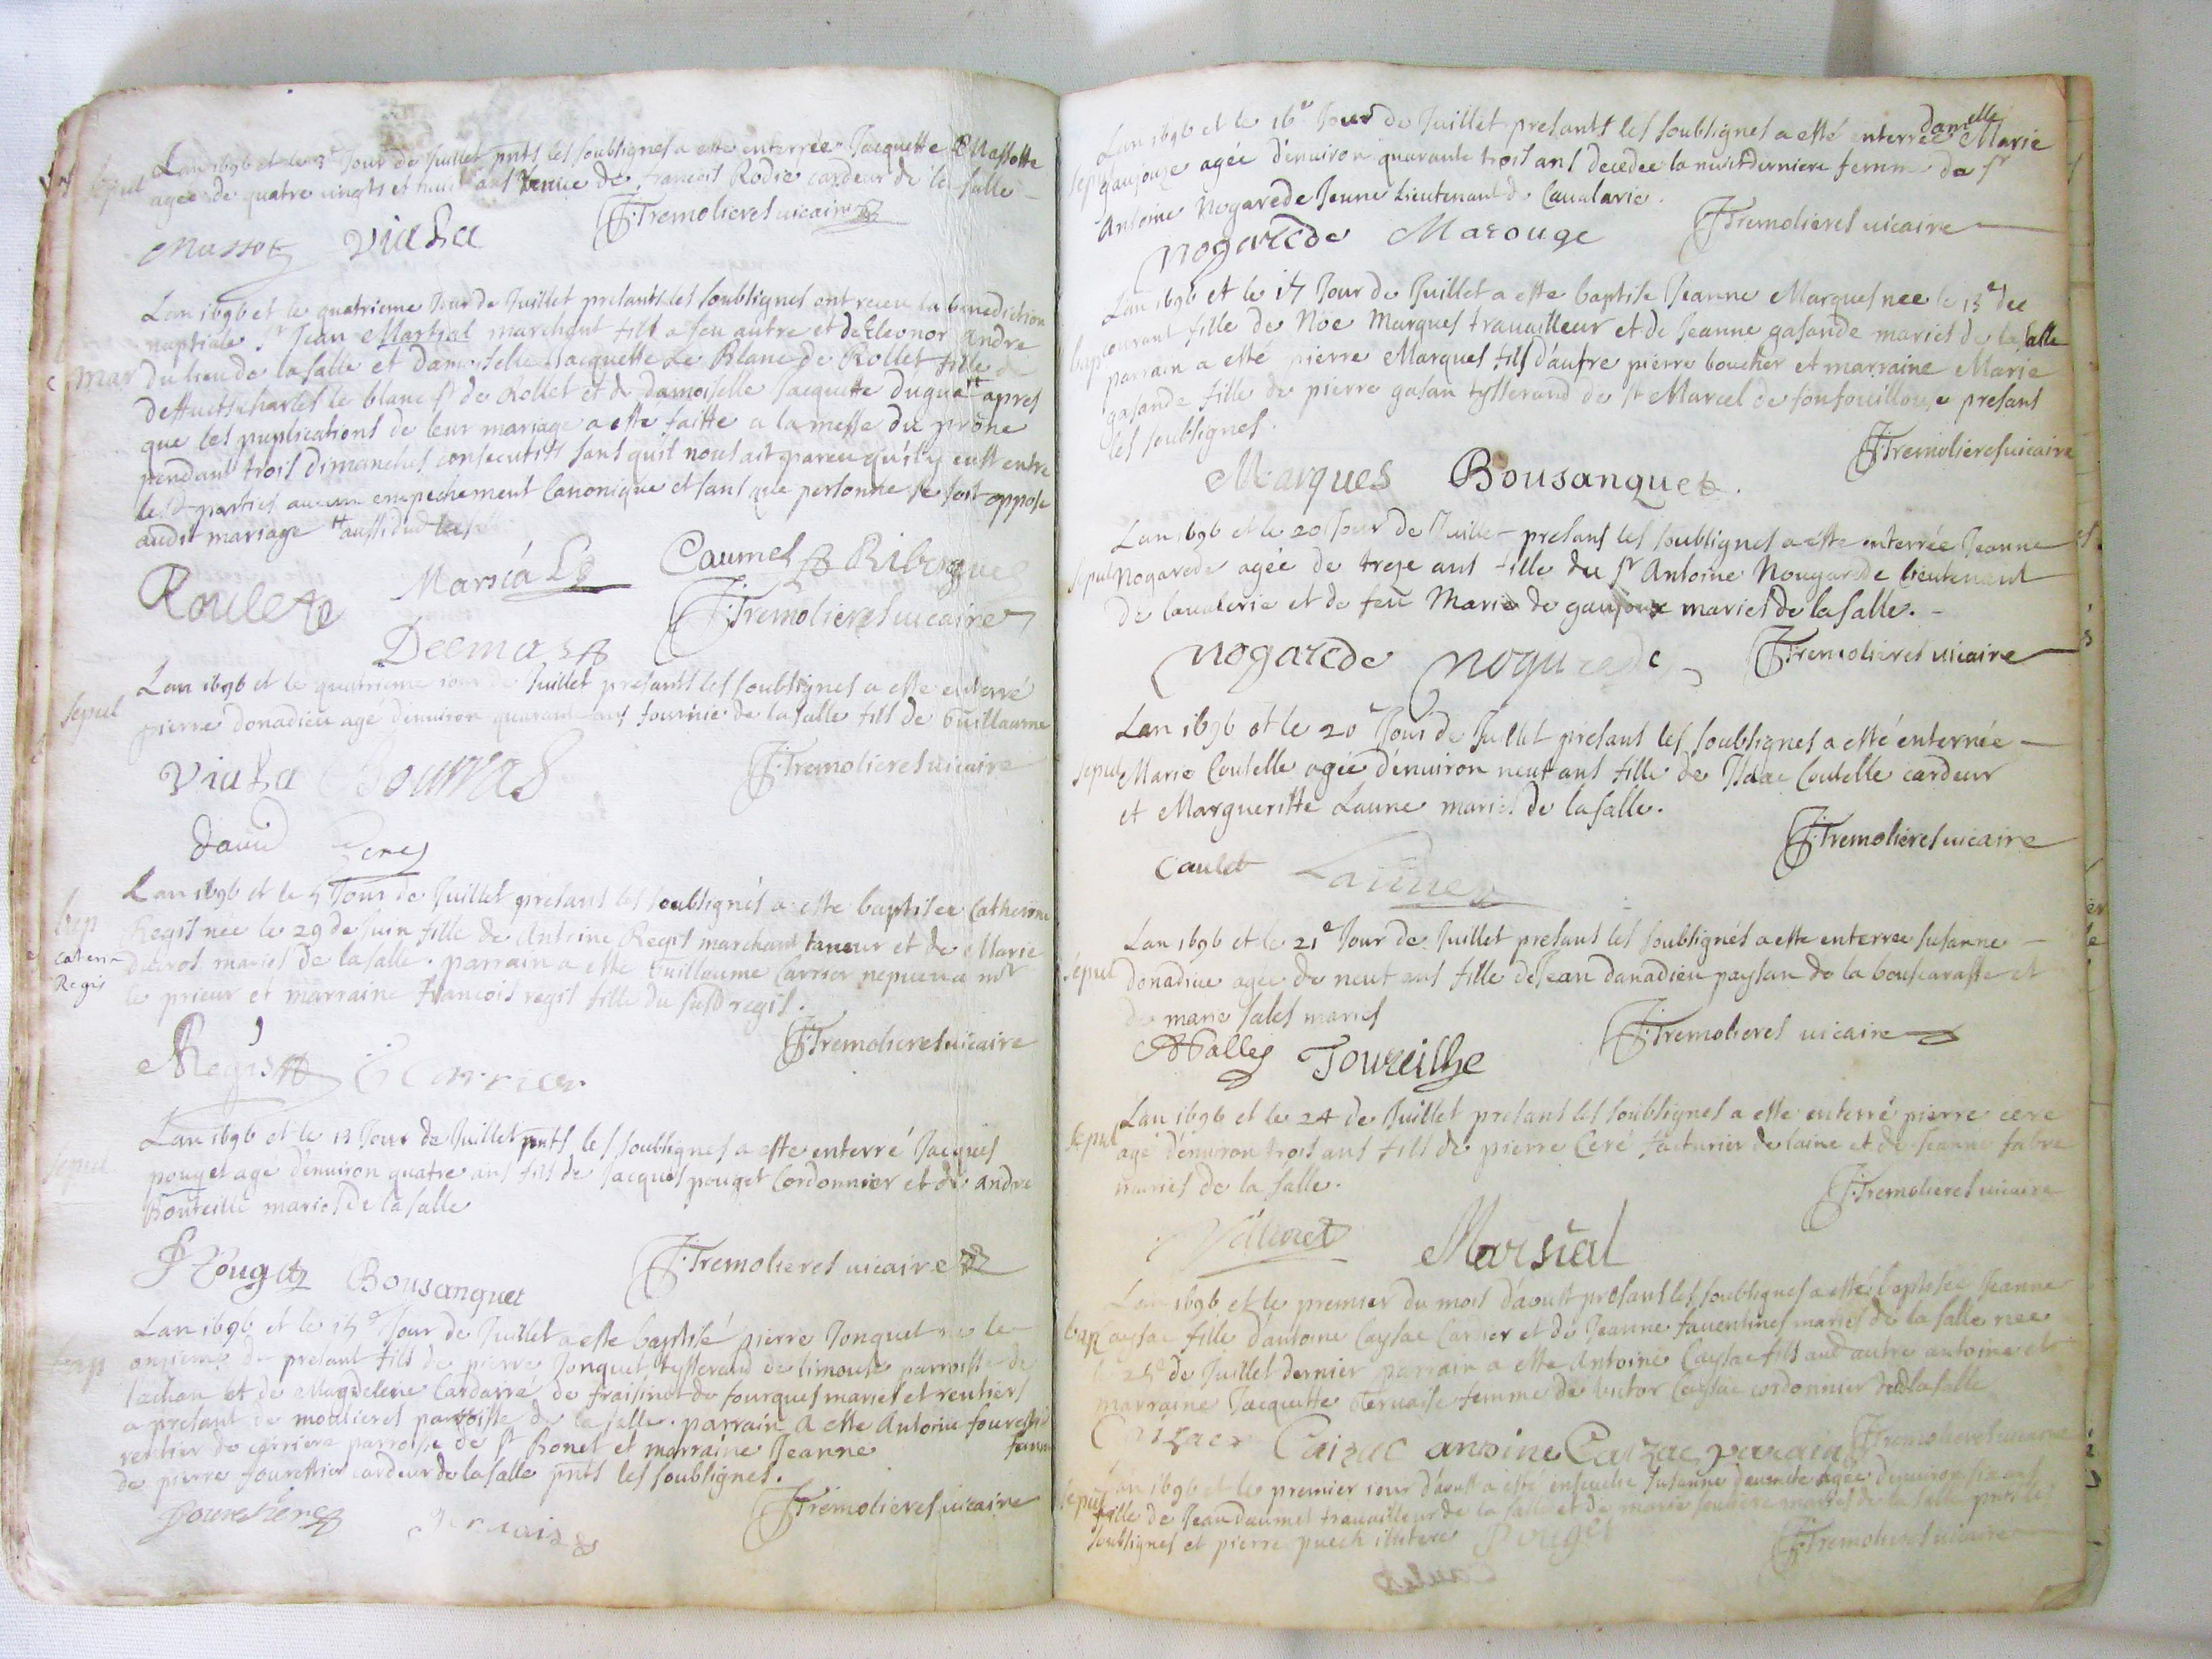 Lan 1696 et le 3e Jour de Juillet pnts les soubsignes a este enterrée Jacquette Massotte
sepul
agée de quatre vingts et huit ans venue de francois Rodie cardeur de la salle
Massot Viala J: Tremolieres uicaire
Lan 1696 et le quatrieme Jour de Juillet presants les soubsignes ont receu la benediction
nuptiale Sr Jean Martial marchant fils a feu autre et de Eleonor Andre
mar
du lieu de la salle et damoiselle Jacquette Le Blanc de Rollet fille de
deffunt charles le blanc sr de Rollet et de damoiselle Jacquette duguat apres
que les puplications de leur mariage a este faitte a la messe du prone
pendant trois dimanches consecutifs sans quil nous ait pareu qu'il y eust entre
les d parties aucun empechement Canonique et sans que personne se soit oppose
audit mariage
Roulet Marsial Caumel Ribergue
Deemas J: Tremolieres uicaire
Lan 1696 et le quatrieme iour de Juillet presants les soubsignes a este enterré
sepul
pierre donadieu agé d'enuiron quarante ans fournie de la salle fils de Guillaume
Viala Soumas J: Tremolieres uicaire
dauid
Lan 1696 et le 5 Jour de Juillet presans les soubsignés a este baptisée Catherine
bap
Regis née le 29 de Juin fille de Antoine Regis marchant taneur et de Marie
Cateri
Regis
ducros maries de la salle. parrain a este Guillaume Carrier nepueu a mr
le prieur et marraine francois regis fille du susd regis.
Regis Carrier J: Tremolieres uicaire
Lan 1696 et le 13 Jour de Juillet pnts les soubsignes a este enterré Jacques
sepul
pouget agé d'enuiron quatre ans fils de Jacques pouget Cordonnier et de andre
Bouteille maries de la salle
Pouget Bousanquet J: Tremolieres uicaire
Lan 1696 et le 15e Jour de Juillet a este baptisé pierre Jonquet ne le
bap
onzieme du presant fils de pierre Jonquet tysserand de limouse parroisse de
lachan et de Magdeleine Cardairre de fraisinet de fourques maries et rentiers
a presant de moulieres parroisse de la salle. parrain a este Antoine fourestie
rentier de carriere parroisse de St Bonet et marraine Jeanne femme
de pierre fourestier cardeur de la salle pnts les soubsignes.
fourestier geruais J: Tremolieres uicaire
Lan 1696 et le 16e Jour de Juillet presants les soubsignes a esté enterrée damelle Marie
sepul
gaujouze agée d'enuiron quarante trois ans decedee la nuit derniere femme de sr
Antoine Nogarede Jeune Lieutenant de Caualarie.
Nogarede Marouge J: Tremolieres uicaire
Lan 1696 et le 17 Jour de Juillet a este baptise Jeanne Marques nee le 13e du
bap
courant fille de Noe Marques trauailleur et de Jeanne gasande maries de la salle
parrain a esté pierre Marques fils d'autre pierre boucher et marraine Marie
gasande fille de pierre gasan tysserand de St Marcel de fonfouillouse presans
les soubsignes.
Marques Bousanquet. J: Tremolieres uicaire
Lan 1696 et le 20 Jour de Juillet presans les soubsignes a este enterrée Jeanne
sepul
Nogarede agée de treze ans fille du sr Antoine Nougarede lieutenant
de caualerie et de feu Marie de gaujoux maries de la salle.
Nogarede Nogarede J: Tremolieres uicaire
Lan 1696 et le 20 Jour de Juillet presans les soubsignes a esté enterrée
sepul
Marie Coutelle agée d'enuiron neuf ans fille de Isaac Coutelle cardeur
et Margueritte Laune maries de la salle.
Caulet Laune J: Tremolieres uicaire
Lan 1696 et le 21e Jour de Juillet presans les soubsignés a este enterree susanne
sepul
donadiue agée de neuf ans fille de Jean danadieu paysan de la bouscarasse et
de marie sales maries
Salles Toureille J: Tremolieres uicaire
Lan 1696 et le 24 de Juillet presans les soubsignes a este enterré pierre cere
sepul
agé d'enuiron trois ans fils de pierre Ceré facturier de laine et de Jeanne fabre
maries de la salle.
J: Tremolieres uicaire
Marsial
Lan 1696 et le premier du mois d'aoust presans les soubsignes a esté baptisée Jeanne
bap
Caysac fille d'antoine Caysac Cardier et de Jeanne fauentines maries de la salle nee
le 25 de Juillet dernier parrain a este Antoine Caysac fils aud autre antoine et
marraine Jacquette geruaise femme de victor Caysac cordonnier dud la salle
Caizac Caizac antoine Caizac parain J: Tremolieres uicaire
Lan 1696 et le premier iour d'aoust a esté enseuelie Susanne daumete agée d'enuiron six ans
sepul
fille de Jean daumet trauailleur de la salle et de marie souliere maries de la salle pnts les
soubsignes et pierre puech illitere Pouget J: Tremolieres uicaire
Caulet